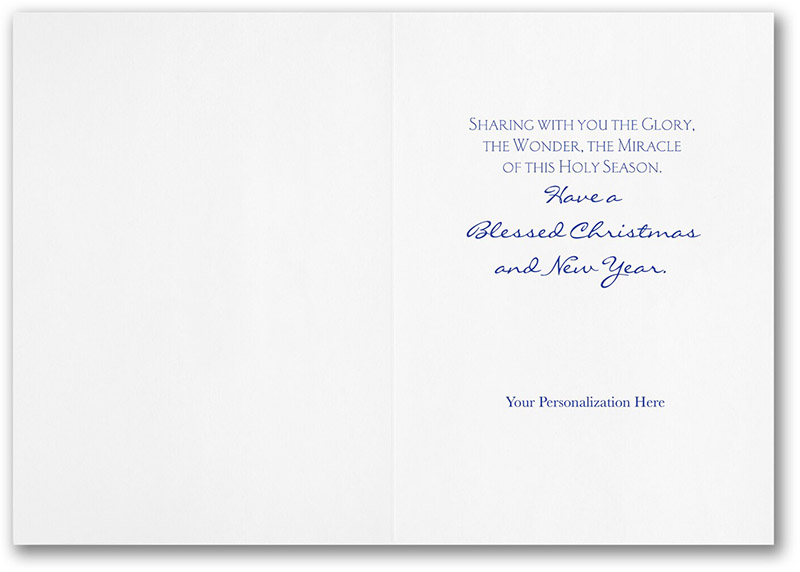 Sharing with you the Glory,
the Wonder, the Miracle
of this Holy Season.
Have a
Blessed Christmas
and New Year.
Your Personalization Here